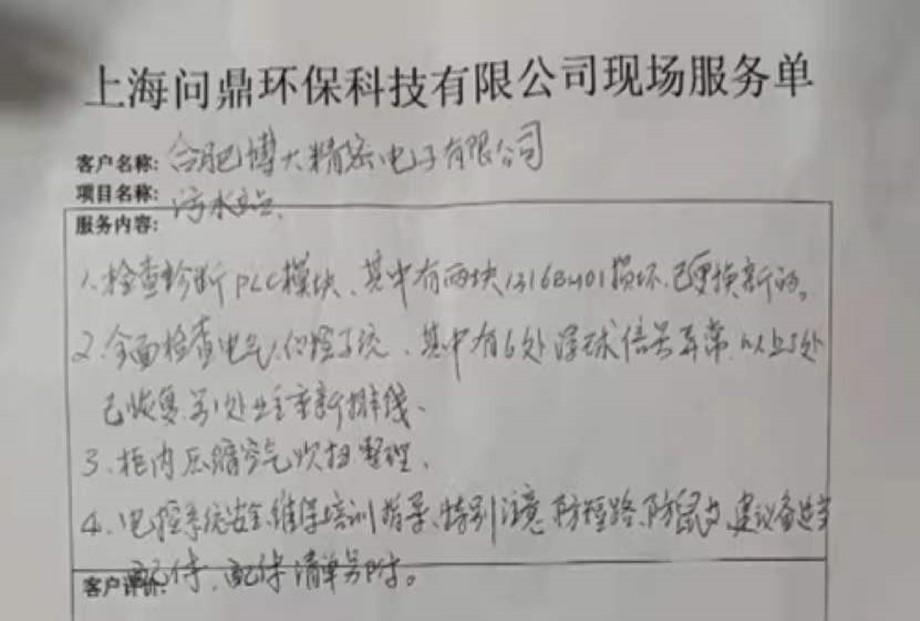 上海问鼎环保科技有限公司现场服务单
客户名称: 合肥博大精密电子有限公司
项目名称: 污水站
服务内容:
1、检查诊断PLC模块、其中有两块 损坏已更换新的。
2、全面检查电气 系统、其中有6处浮球信号异常 以上5处
已恢复另1处业主重新排线、
3、柜内压缩空气吹扫整理、
4、电控系统安全维保培训指导、特别注意防短路、防鼠 建议备适当
配件、配件清单另附。
客户评价: